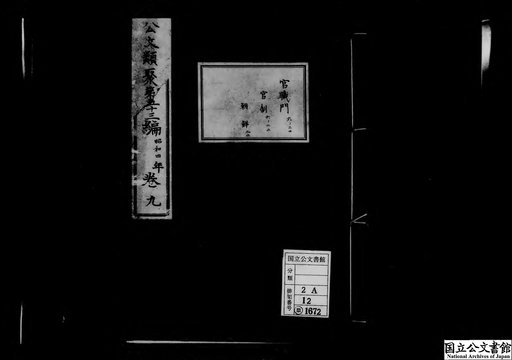 公文類聚第五十三編昭和四年卷九
官職門
官制
朝鮮
国立公文書館
分類
排架番号
2 A
12
類 1672
国立公文書館
National Archives of Japan